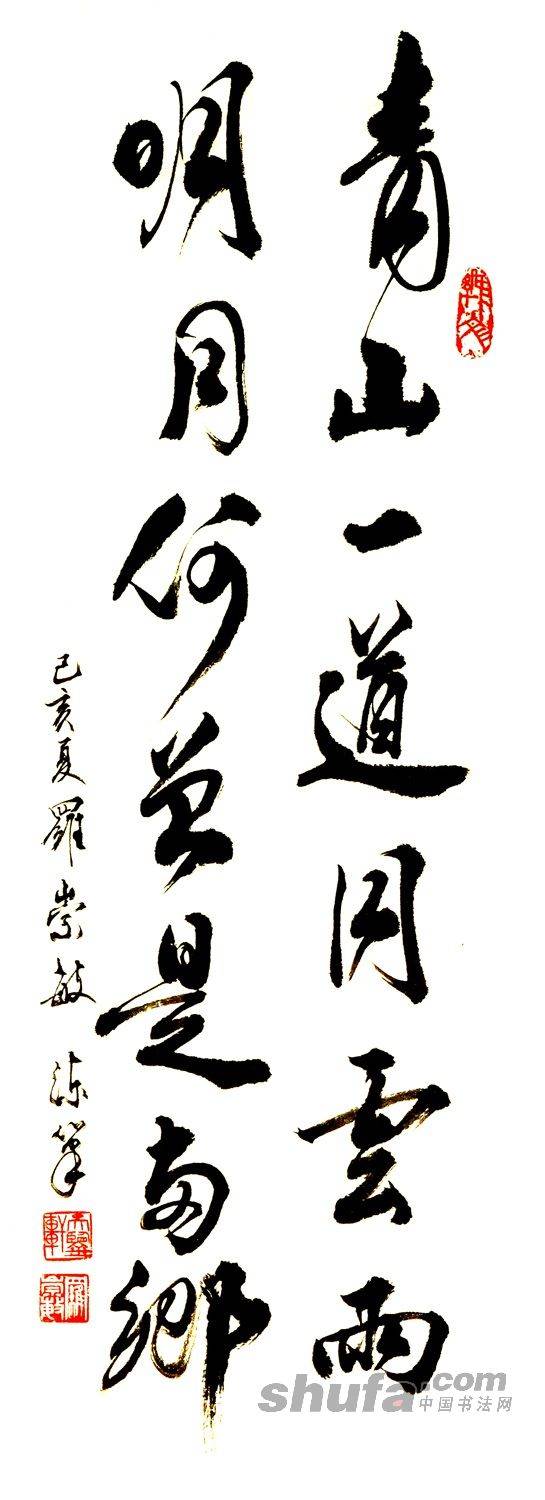 青山一道同雲雨
明月何曾是兩鄉
己亥夏羅崇敏
shufa.com
中国书法网